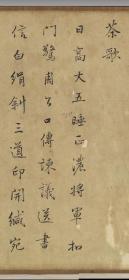 茶歌
日高大五睡正濃將軍扣
門驚周公口傳諫議送書
信白絹斜三道印開緘宛